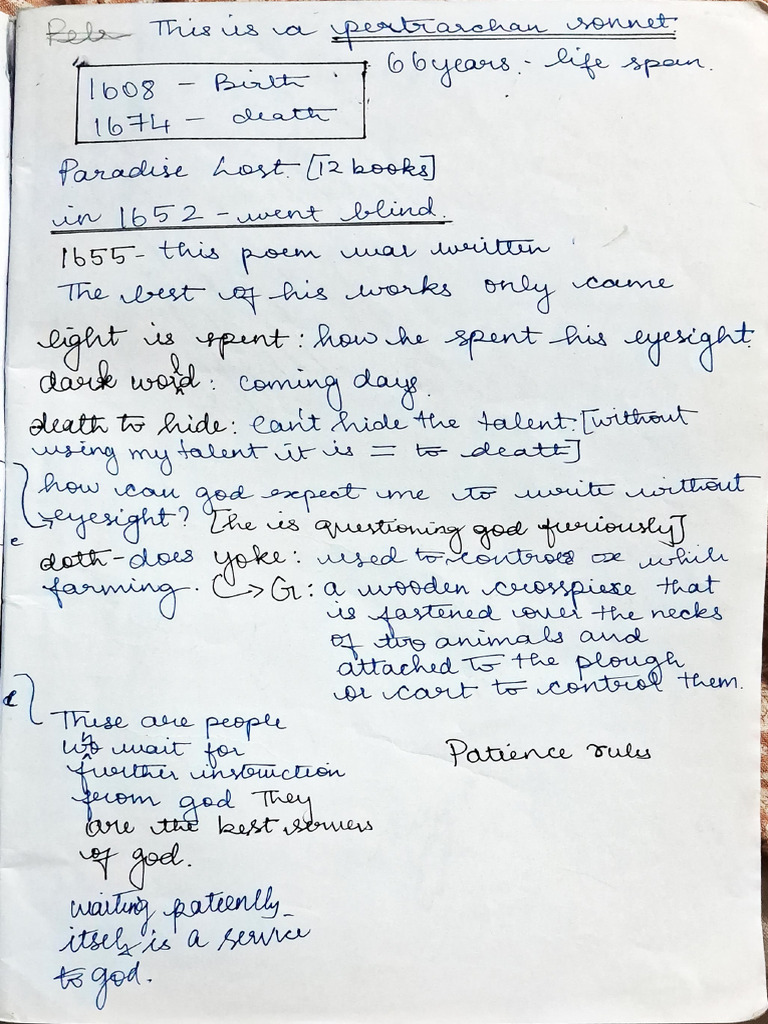 This is a pertrarchan sonnet.
1608 - Birth
66 years - life span.
1674 - death
Paradise Lost. [12 books]
in 1652 - went blind.
1655 - this poem was written
The best of his works only came
light is spent : how he spent his eyesight.
dark world : coming days.
death to hide : can't hide the talent. [without
using my talent it is = to death]
how can god expect me to write without
eyesight? [he is questioning god furiously]
doth - does yoke : used to control ox while
farming. G : a wooden crosspiece that
is fastened over the necks
of two animals and
attached to the plough
or cart to control them.
These are people
who wait for
further instruction
from god They
are the best servers
of god.
Patience rules
waiting pateenlly
itself is a service
to god.